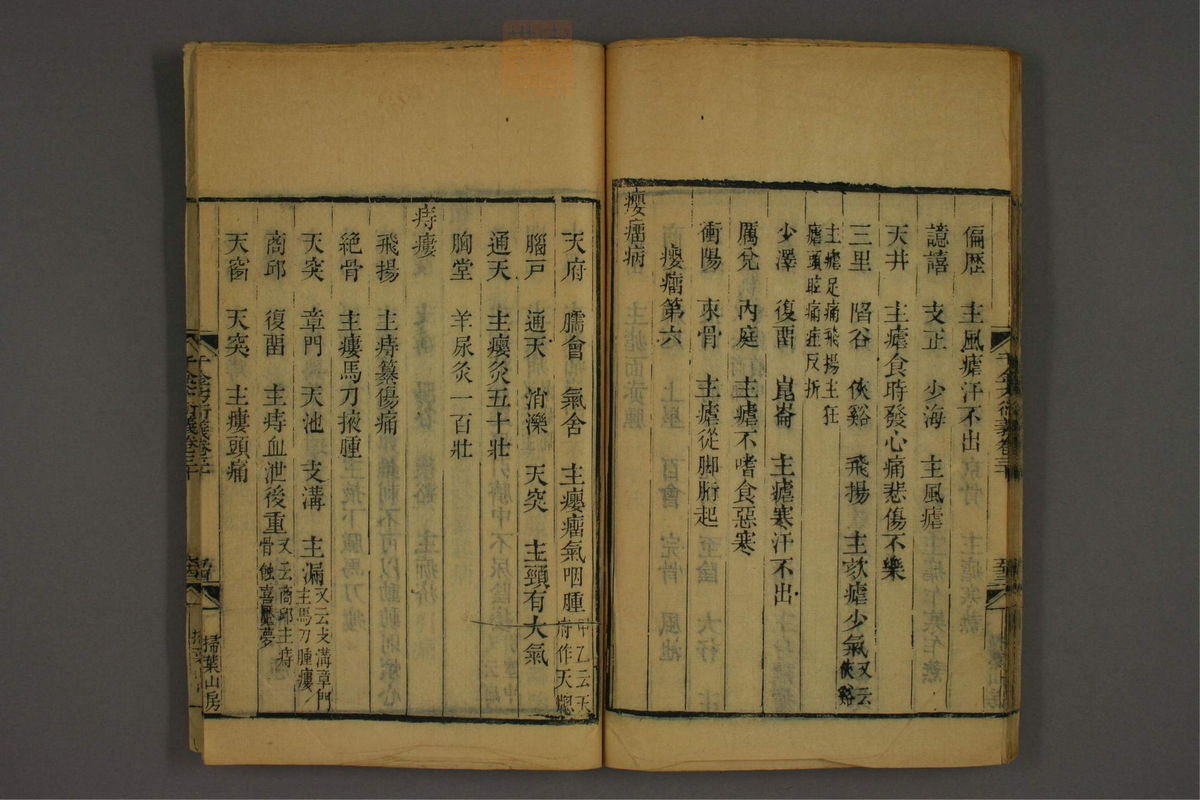 偏歷　主風瘧汗不出
譩譆　支正　少海　主風瘧
天井　主瘧食時發心痛悲傷不樂
三里　陷谷　俠谿　飛揚　主欬瘧少氣又云俠谿
主瘧足痛飛揚主狂
瘧頭眩痛痓反折
少澤　復畱　崑崙　主瘧寒汗不出
厲兌　內庭　主瘧不嗜食惡寒
衝陽　朿骨　主瘧從脚胻起
癭瘤第六
癭瘤病
天府　臑會　氣舍　主癭瘤氣咽腫甲乙云天府作天牕
腦戸　通天　消濼　天突　主頸有大氣
通天　主癭灸五十壯
胸堂　羊尿灸一百壯
痔瘻
飛揚　主痔篡傷痛
絶骨　主瘻馬刀掖腫
天突　章門　天池　支溝　主漏又云支溝章門主馬刀腫瘻
商邱　復畱　主痔血泄後重又云商邱主痔骨蝕喜壓夢
天窗　天突　主瘻頭痛
掃葉山房